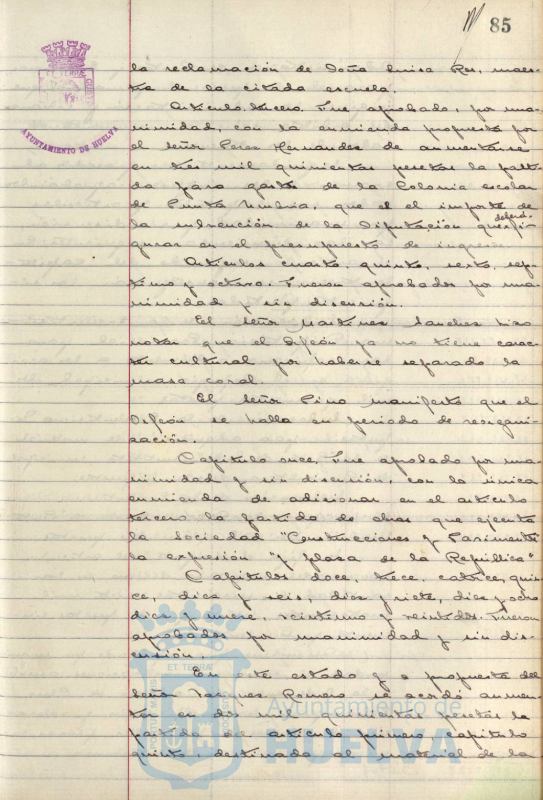 85
AYUNTAMIENTO DE HUELVA
la reclamación de Doña Luisa Ros, maes-
tra de la citada escuela.
Artículo tercero. Fue aprobado, por una-
nimidad, con la enmienda propuesta por
el señor Perez Hernandez de aumentarse
en tres mil quinientas pesetas la parti-
da para gastos de la Colonia escolar
de Punta Umbria, que es el importe de
la subvención de la Diputación que fi-
gurar en el presupuesto de ingresos.
Artículos cuarto, quinto, sexto, sep-
timo y octavo. Fueron aprobados por una-
nimidad y sin discusión.
El señor Martinez Sanchez hizo
notar que el Orfeón ya no tiene carac-
ter cultural por haberse separado la
masa coral.
El señor Pino manifestó que el
Orfeón se halla en periodo de reorgani-
zación.
Capítulo once. Fue aprobado por una-
nimidad y sin discusión, con la única
enmienda de adicionar en el artículo
tercero la partida de obras que ejecuta
la Sociedad "Construcciones y Pavimentos"
la expresión "y plaza de la República"
Capítulos doce, trece, catorce, quin-
ce, diez y seis, diez y siete, diez y ocho
diez y nueve, veintiuno y veintidos. Fueron
aprobados por unanimidad y sin dis-
cusión.
En este estado y a propuesta del
señor Vazquez Romero se acordó aumen-
tar en dos mil quinientas pesetas la
partida del artículo primero, capítulo
quinto, destinada al material de la
ET TERRA
Ayuntamiento de
HUELVA